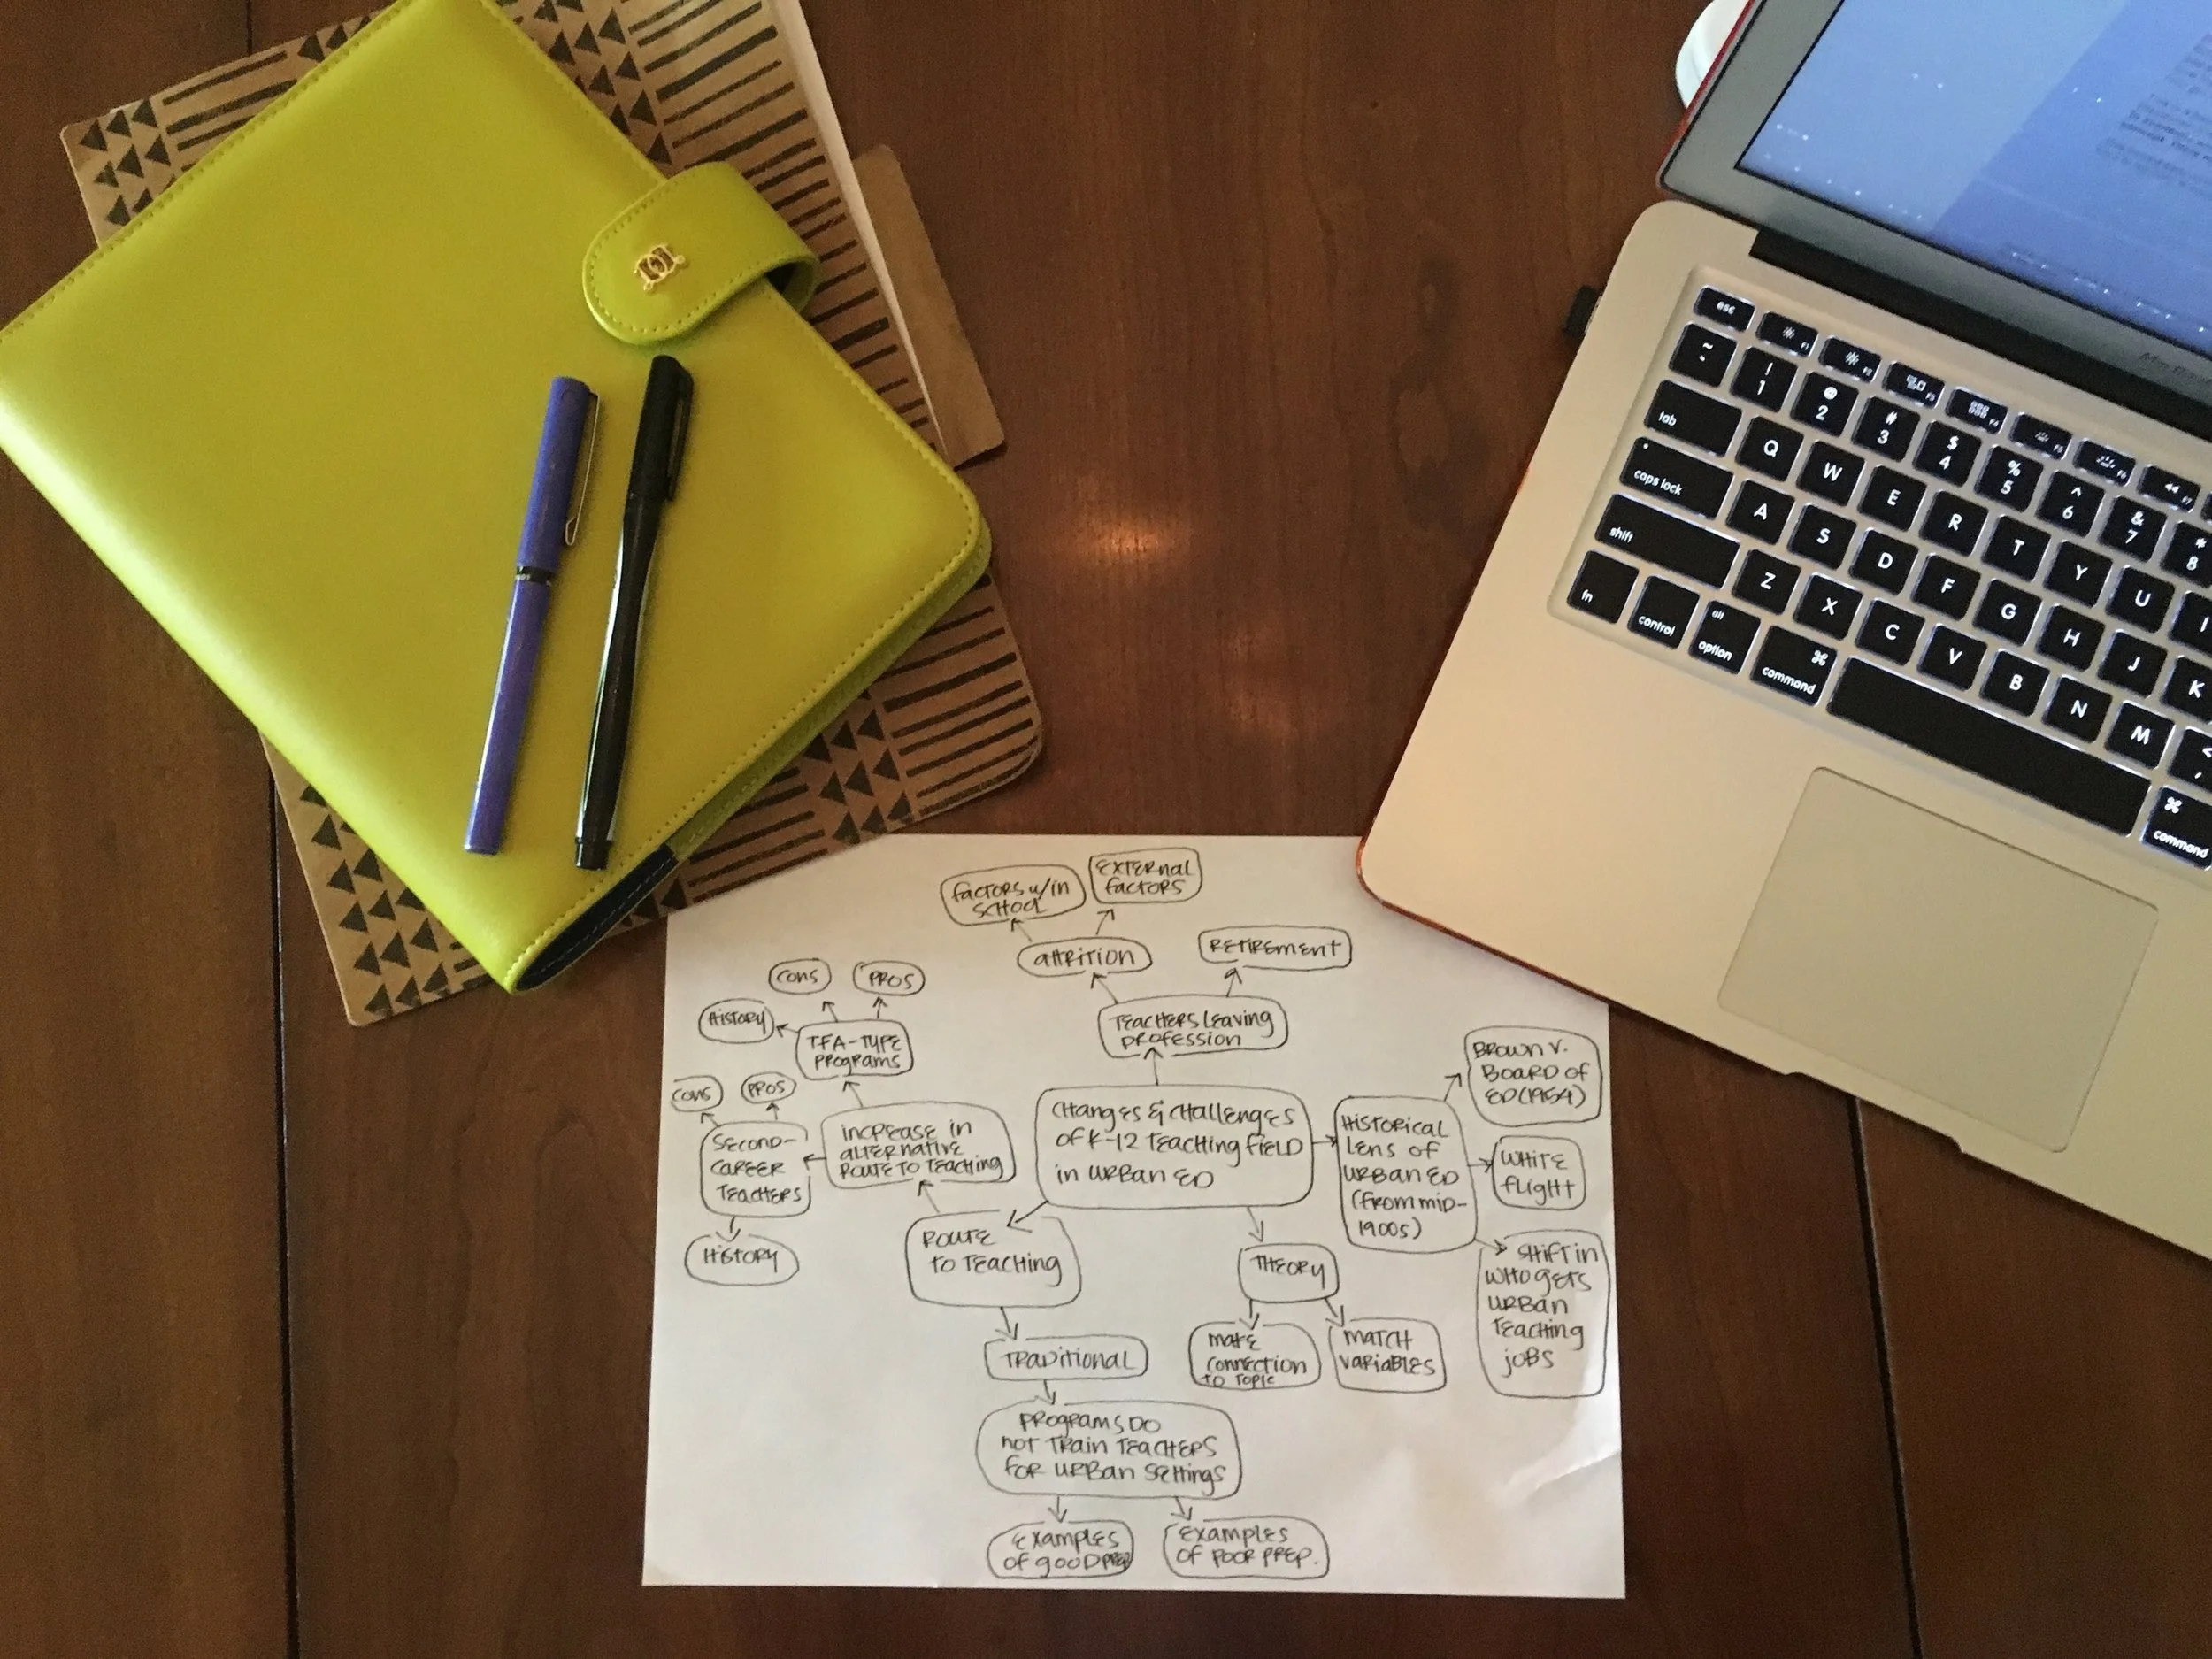 esc
F1
F2
F3
F4
F5
F6
F7
~
!
1
@
2
#
3
$
4
%
5
^
6
&
7
*
8
tab
Q
W
E
R
T
Y
U
I
caps lock
A
S
D
F
G
H
J
K
shift
Z
X
C
V
B
N
M
<
,
fn
control
alt
option
⌘
command
⌘
command
FACTORS W/IN
SCHOOL
EXTERNAL
FACTORS
ATTRITION
RETIREMENT
TEACHERS LEAVING
PROFESSION
CONS
PROS
HISTORY
TFA-TYPE
PROGRAMS
CONS
PROS
SECOND-
CAREER
TEACHERS
HISTORY
INCREASE IN
ALTERNATIVE
ROUTE TO TEACHING
CHANGES & CHALLENGES
OF K-12 TEACHING FIELD
IN URBAN ED
HISTORICAL
LENS OF
URBAN ED
(FROM MID-
1900s)
BROWN V.
BOARD OF
ED (1954)
WHITE
FLIGHT
SHIFT IN
WHO GETS
URBAN
TEACHING
JOBS
ROUTE
TO TEACHING
THEORY
MAKE
CONNECTION
TO TOPIC
MATCH
VARIABLES
TRADITIONAL
PROGRAMS DO
NOT TRAIN TEACHERS
FOR URBAN SETTINGS
EXAMPLES
OF GOOD PREP
EXAMPLES
OF POOR PREP.